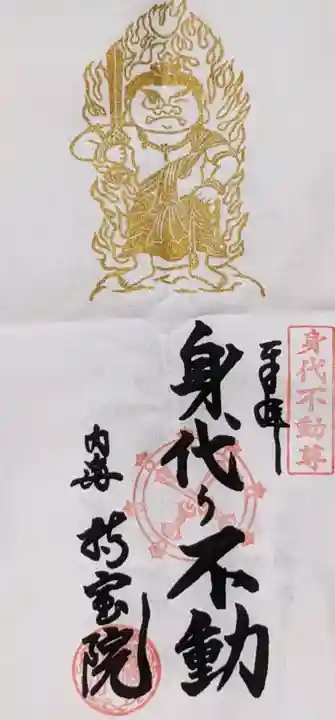 身代不動尊
奉拝
身代り不動
内海
持宝院